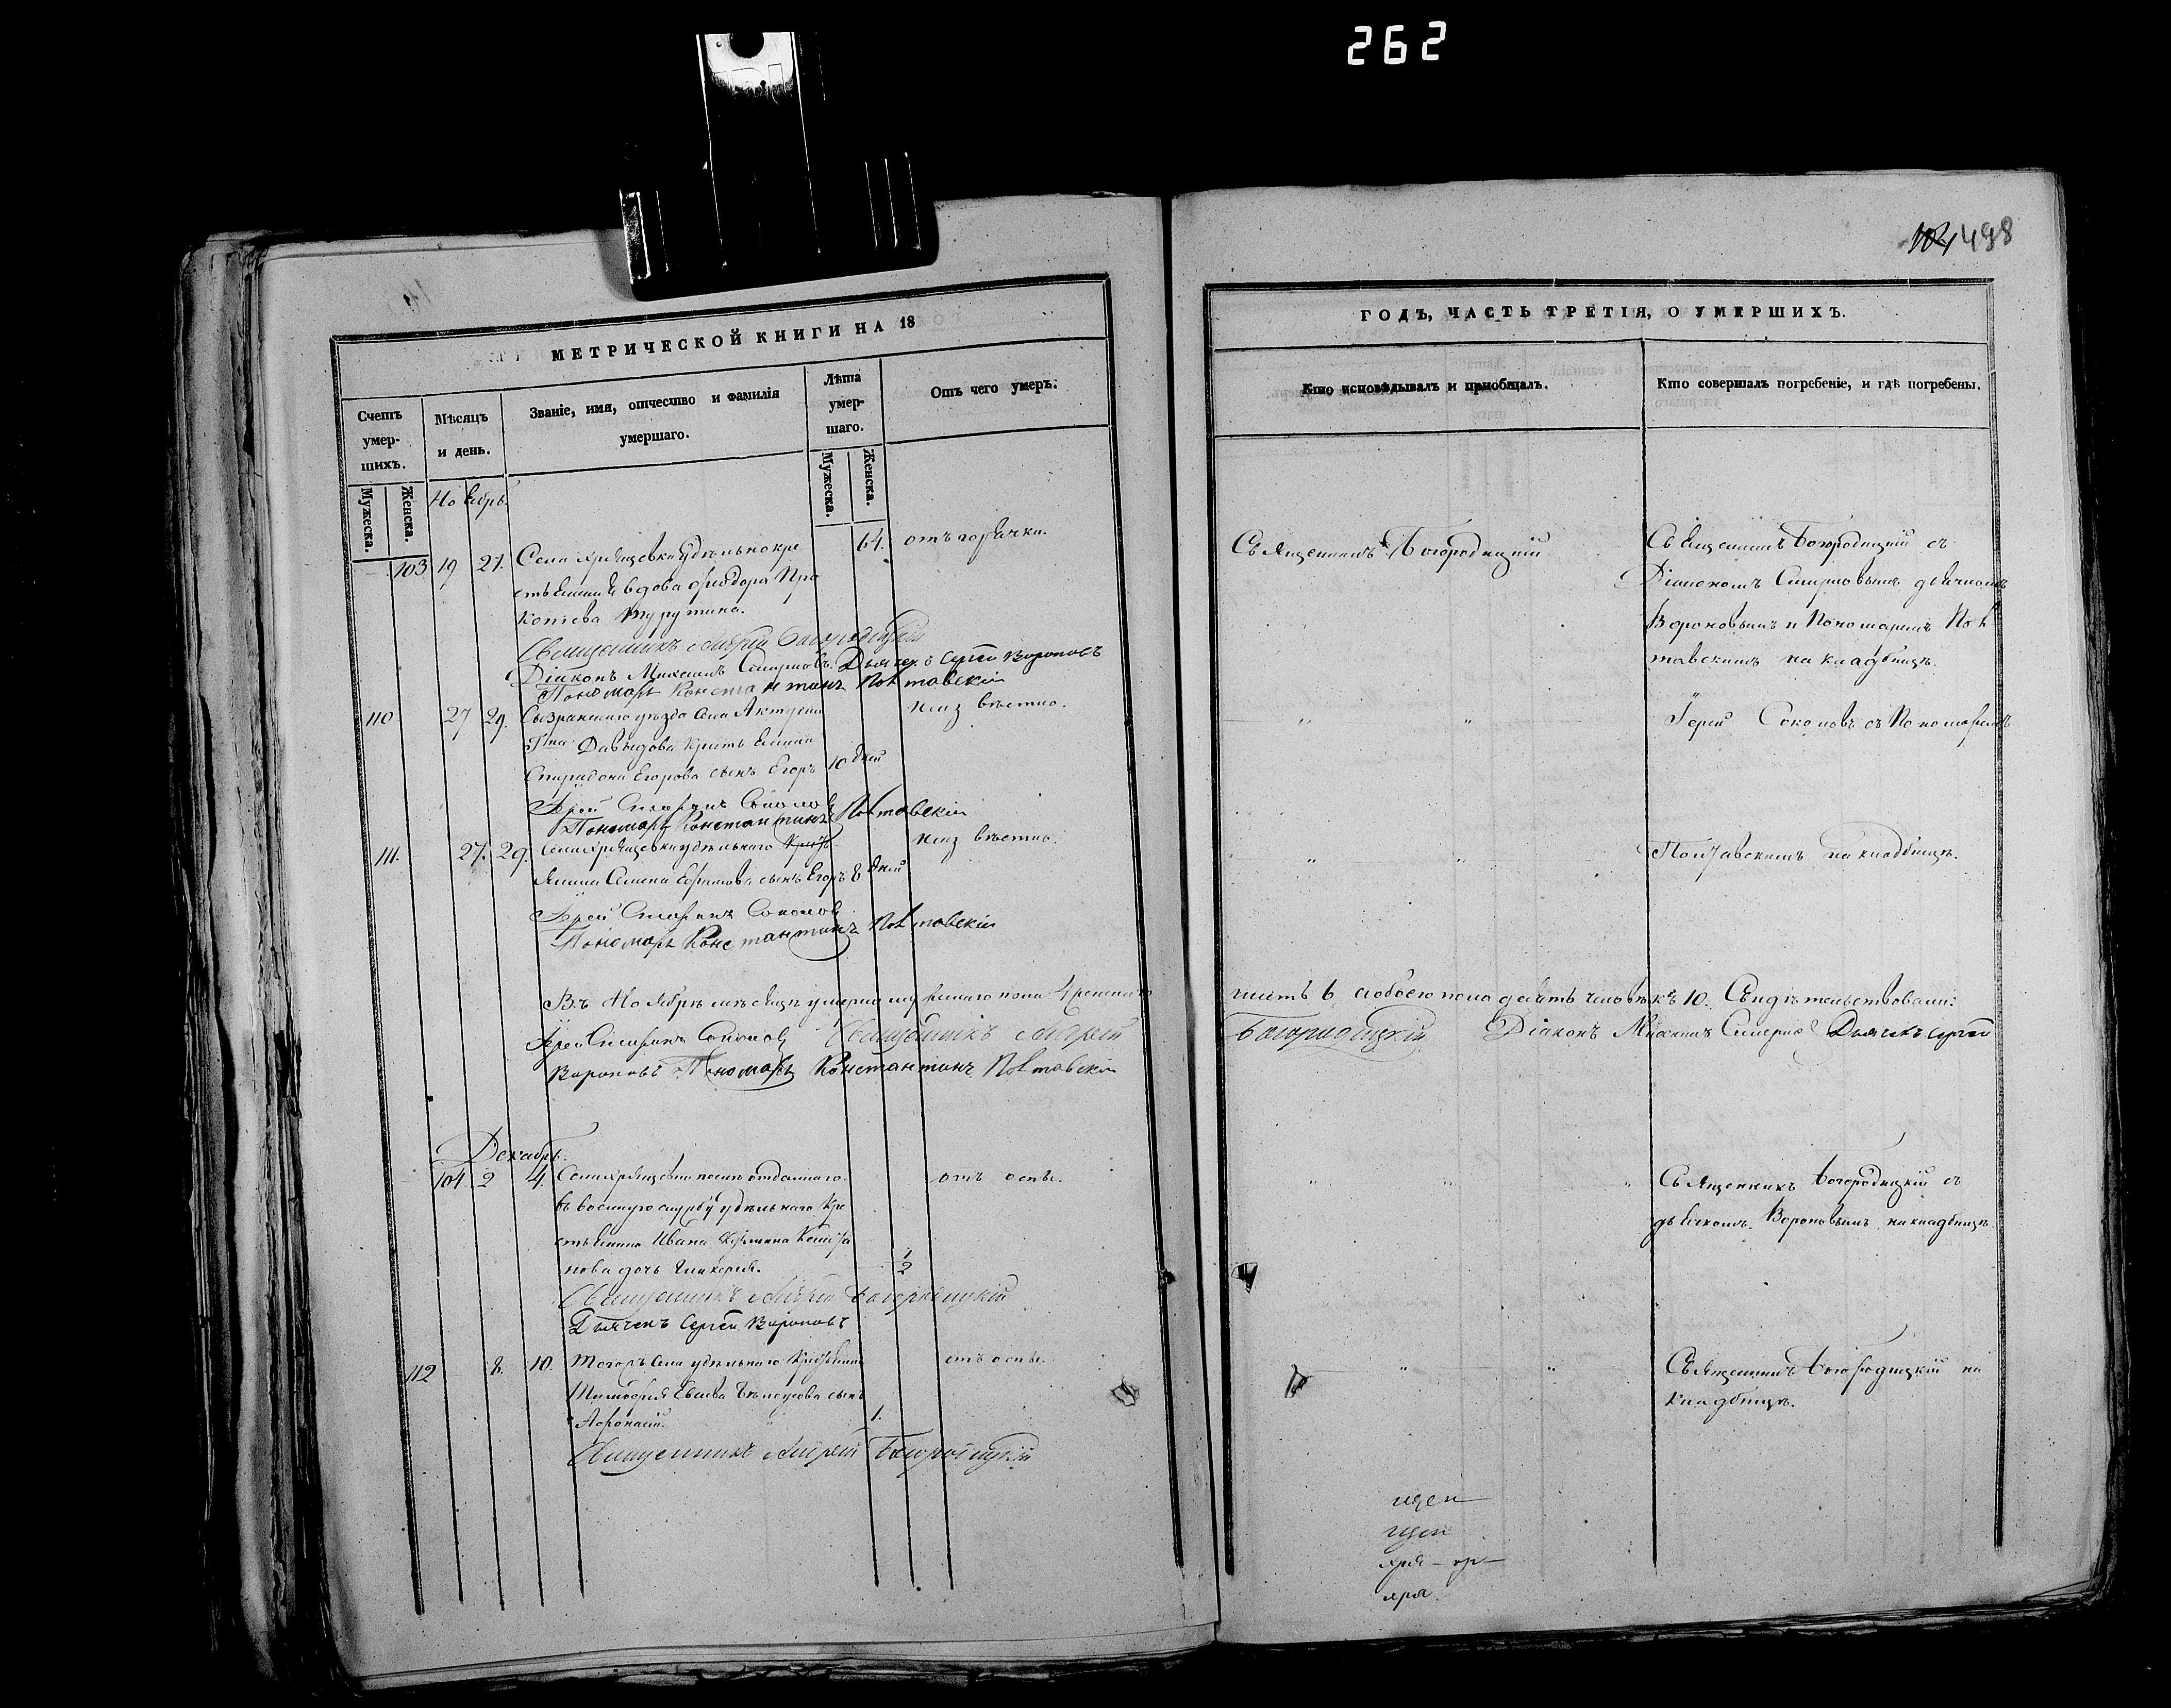 262
104 498
МЕТРИЧЕСКОЙ КНИГИ НА 18
Счетъ умер-шихъ.
Мужеска.
Женска.
Мѣсяцъ и день.
Званіе, имя, отчество и фамилія умершаго.
Лѣта умер-шаго.
Мужеска.
Женска.
Отъ чего умеръ.
Ноябрь.
103 19 21. Села Хрящевки удѣльнокре 64. отъ горячки.
стьянина вдова Ѳеодора Про
копіева Турутина.
Священникъ Андрей Богородицкій
Діаконъ Михаилъ Смирновъ. Дьячекъ Сергей Вороновъ
Пономарь Константинъ Полтавскій
110 27 29. Сызранскаго уѣзда села Актуши неизвѣстно.
Гна Давыдова крестьянина
Спиридона Егорова сынъ Егоръ 10 дней
Іерей Соколовъ
Пономарь Константинъ Полтавскій
111. 27. 29. Села Хрящевки удѣльнаго Кресть неизвѣстно.
янина Семена сынъ Егоръ 8 дней
Іерей Соколовъ
Пономарь Константинъ Полтавскій
Въ Ноябрѣ мѣсяцѣ умерло мужескаго пола 4 женскаго
Іерей Соколовъ Священникъ Андрей
Вороновъ Пономарь Константинъ Полтавскій
Декабрь.
104 2 4. Села Хрящевки отданнаго отъ оспы.
въ военную службу удѣльнаго кре
стьянина Ивана
нова дочь Гликерія. 1/2
Священникъ Андрей Богородицкій
Дьячекъ Сергей Вороновъ
112 8. 10. Тогожъ села удѣльнаго крестьянина отъ оспы.
Тимофея сынъ
Афонасій. 1.
Священникъ Андрей Богородицкій
ГОДЪ, ЧАСТЬ ТРЕТІЯ, О УМЕРШИХЪ.
Кто исповѣдывалъ и пріобщалъ.
Кто совершалъ погребеніе, и гдѣ погребены.
Священникъ Богородицкій
Священникъ Богородицкій съ
Діакономъ Смирновымъ, дьячкомъ
Вороновымъ и Пономаремъ Пол
тавскимъ на кладбищѣ.
" " Іерей Соколовъ съ Пономаремъ
" " Полтавскимъ на кладбищѣ.
6 обоего пола десять человѣкъ 10. Свидѣтельствовали:
Богородицкій Діаконъ Михаилъ Смирновъ Дьячекъ Сергей
" " " Священникъ Богородицкій съ
дьячкомъ Вороновымъ на кладбищѣ.
" " Священникъ Богородицкій на
кладбищѣ.